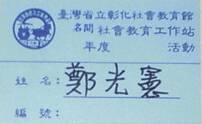 臺灣省立彰化社會教育館
名間社會教育工作站
年度 活動
姓名：鄭光憲
編號：